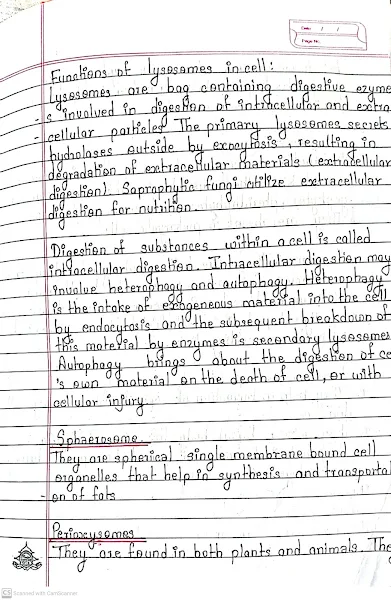 Date: / /
Page No.
Functions of lysosomes in cell:
Lysosomes are bag containing digestive enzyme
- s involved in digestion of intracellular and extra
- cellular particles The primary lysosomes secrets
hydrolases outside by exocytosis, resulting in
degradation of extracellular materials (extracellular
digestion) Saprophytic fungi utilize extracellular
digestion for nutrition.
Digestion of substances within a cell is called
intracellular digestion. Intracellular digestion may
involve heterophagy and autophagy. Heterophagy
is the intake of exogeneous material into the cell
by endocytosis and the subsequent breakdown of
this material by enzymes is secondary lysosomes
Autophagy brings about the digestion of ce
's own material on the death of cell, or with
cellular injury
Sphaerosome
They are spherical single membrane bound cell
organelles that help in synthesis and transporta
- on of fats
Perioxysomes
They are found in both plants and animals. The
CS Scanned with CamScanner